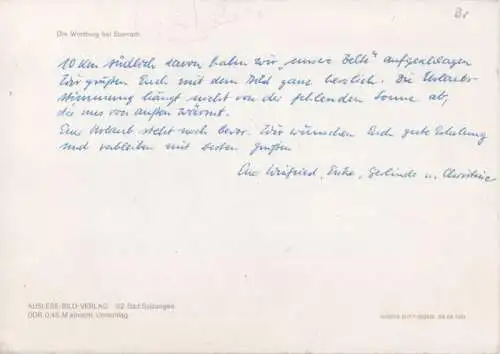 Br
Die Wartburg bei Eisenach
10 km südlich davon haben wir „unsere Zelte“ aufgeschlagen
Wir grüßen Euch mit dem Bild ganz herzlich. Die Urlaubs-
stimmung hängt nicht von der fehlenden Sonne ab,
die uns von außen wärmt.
Eure Urlaub steht noch bevor. Wir wünschen Euch gute Erholung
und verbleiben mit besten Grüßen
Eure Winfried, Gerlinde u. Christine
AUSLESE-BILD-VERLAG 62 Bad Salzungen
DDR 0,45 M einschl. Umschlag